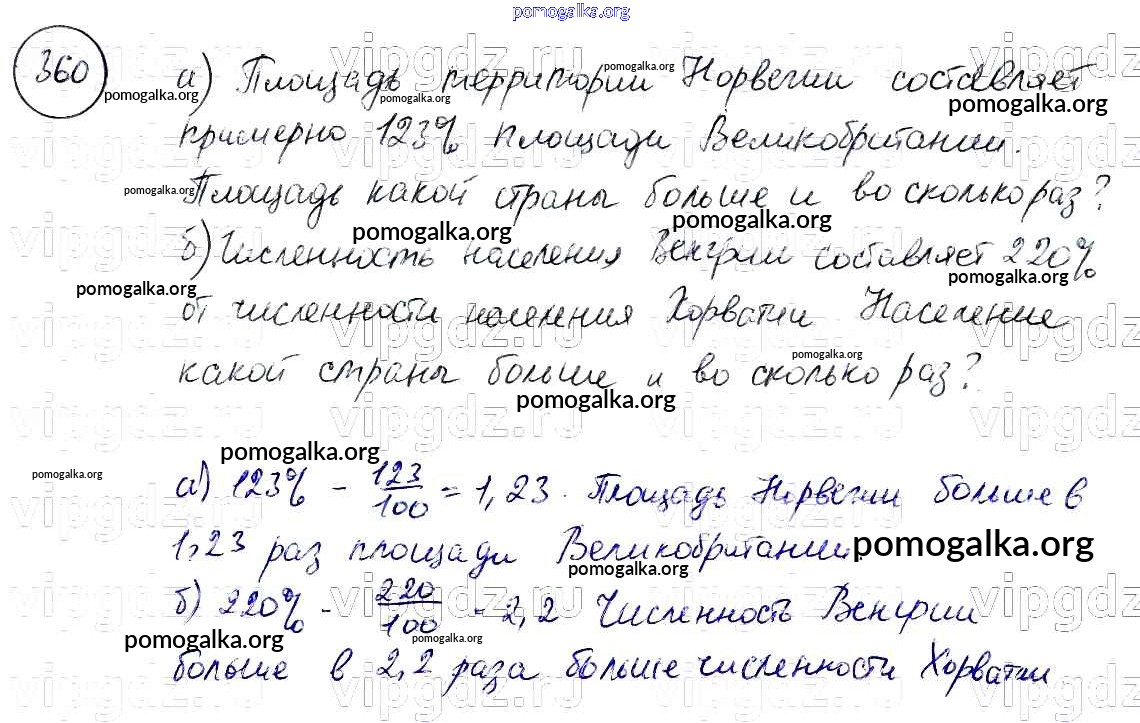 pomogalka.org
360
а) Площадь территории Норвегии составляет
примерно 123% площади Великобритании.
Площадь какой страны больше и во сколько раз?
б) Численность населения Венгрии составляет 220%
от численности населения Хорватии Население
какой страны больше и во сколько раз?
а) 123% - 123/100 = 1,23. Площадь Норвегии больше в
1,23 раз площади Великобритании.
б) 220% - 220/100 - 2,2 Численность Венгрии
больше в 2,2 раза больше численности Хорватии